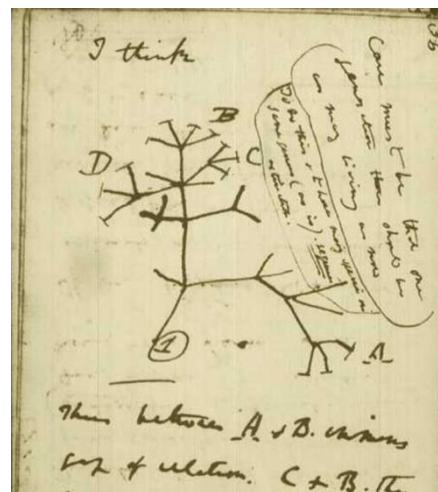 I think
B
D
C
A
1
Case must be that one
generation then should be
as many living as now
To do this & to have many species in
same genus (as is). requires
extinction.
Thus between A & B. immens
gap of relation. C & B. The